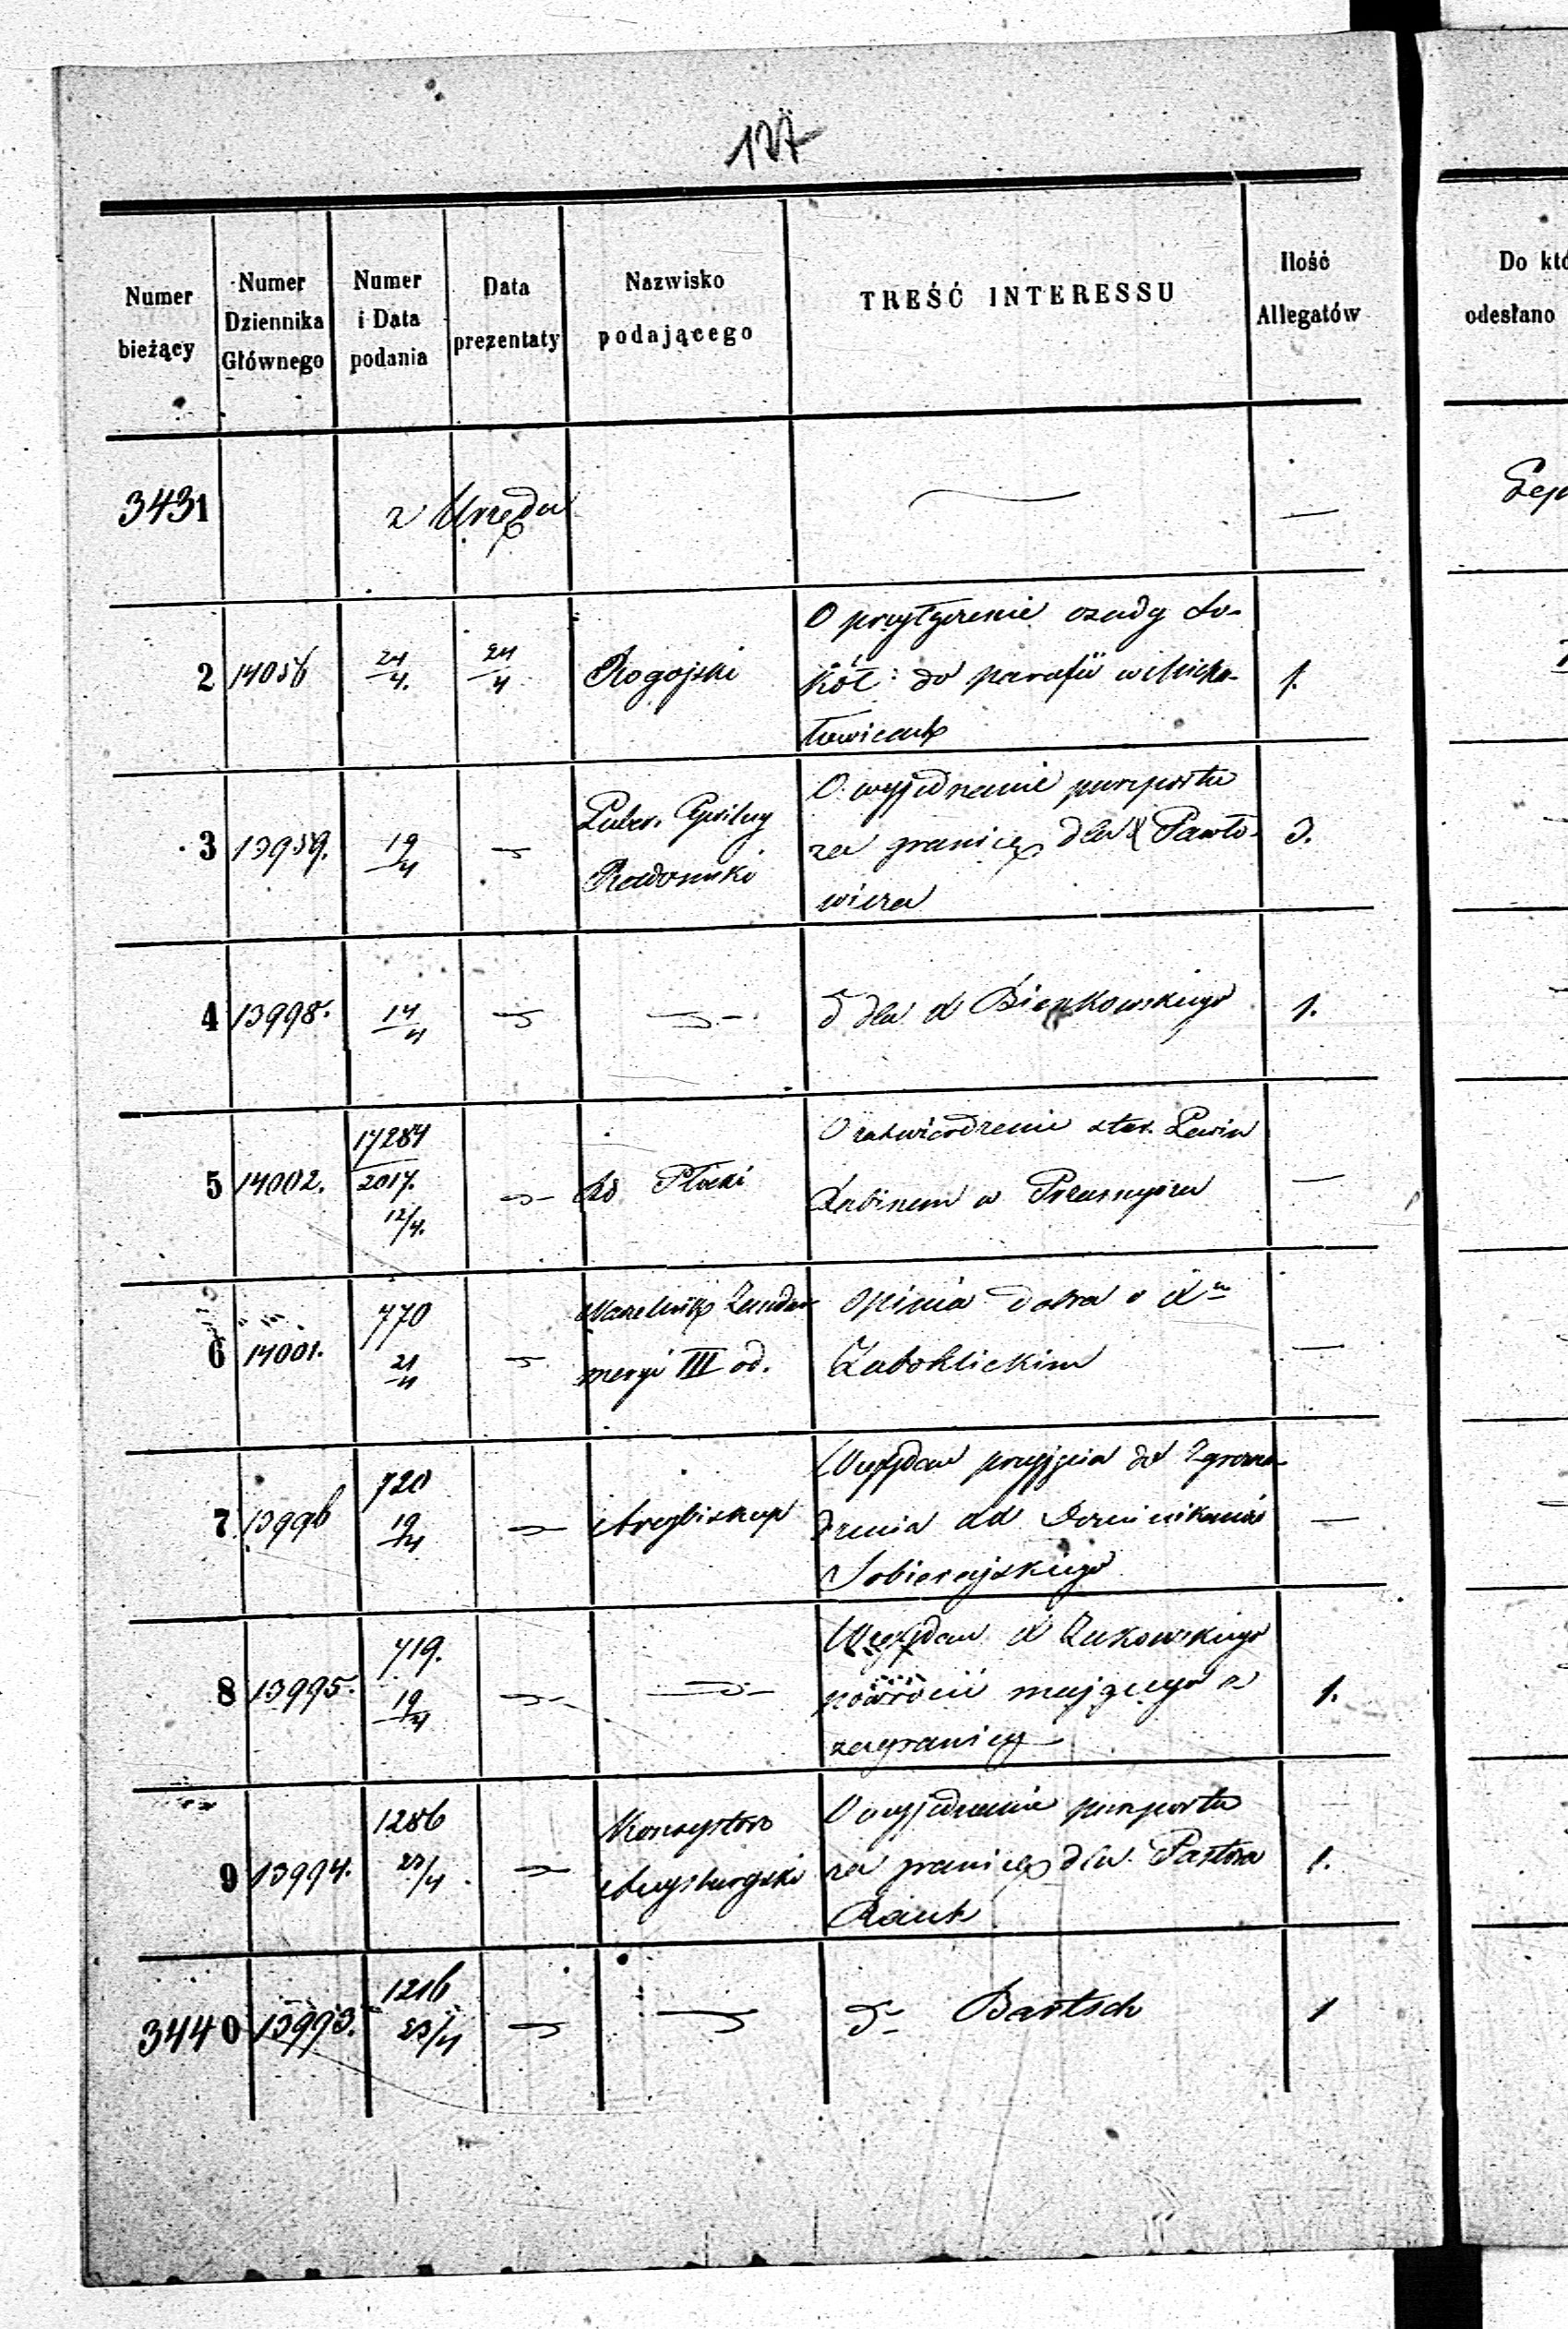 127
Numer bieżący
Numer Dziennika Głównego
Numer i Data podania
Data prezentaty
Nazwisko podającego
TREŚĆ INTERESSU
Ilość Allegatów
Do któ
odesłano
3431 z Urzędu —
2 14056 24/4. 24/4 Rogojski
O przyłączenie osady So-
kół: do parafii w Micha-
łowicach
1.
3 13959. 19/4
Guber. Cywilny
Radomski
O wyjednanie paszportu
za granicę dla X Pawło-
wicza
3.
4 13998. 14/4
d dla X Bienkowskiego
1.
5 14002.
17284
2017.
12/4.
Rd Płocki
O zatwierdzenie star. Lewin
Rabinem w Przasnyszu
—
6 14001.
770
21/4
Naczelnik Żandar
meryi III od.
Opinia dobra o Xu
Zaboklickim
—
7 13996
720
19/4
Arcybiskup
Względem przyjęcia do Zgroma
dzenia XX Dominikanów
Sobierajskiego
—
8 13995.
719.
19/4
Względem X Żukowskiego
powrócić mającego z
zagranicy
1.
9 13994.
1286
23/4
Konsystorz
Augsburgski
O wyjednanie paszportu
za granicę dla Pastora
Rauh
1.
3440 13993.
1216
23/4
d- Bartsch
1